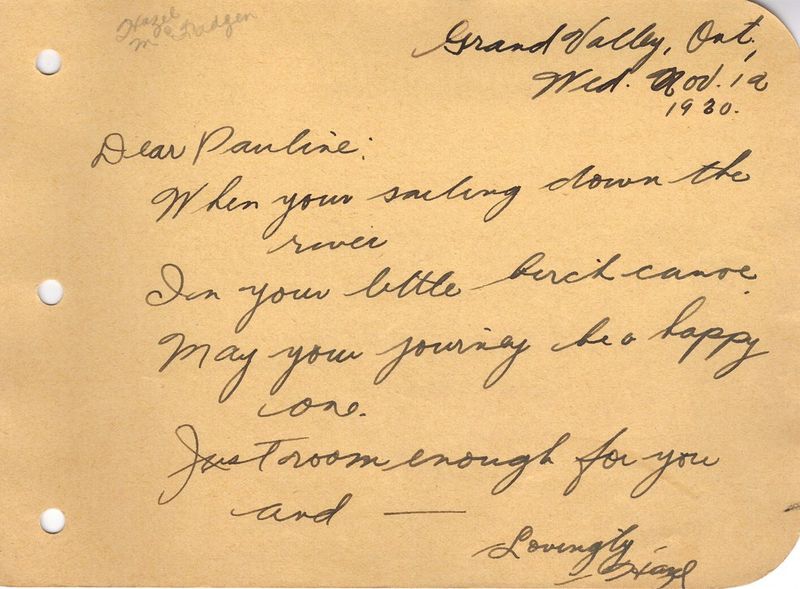 Hazel
Grand Valley, Ont.,
Wed. Nov. 12
1930.
Dear Pauline:
When your sailing down the
river
In your little birch canoe
May your journey be a happy
one.
Just room enough for you
and —
Lovingly
Hazel